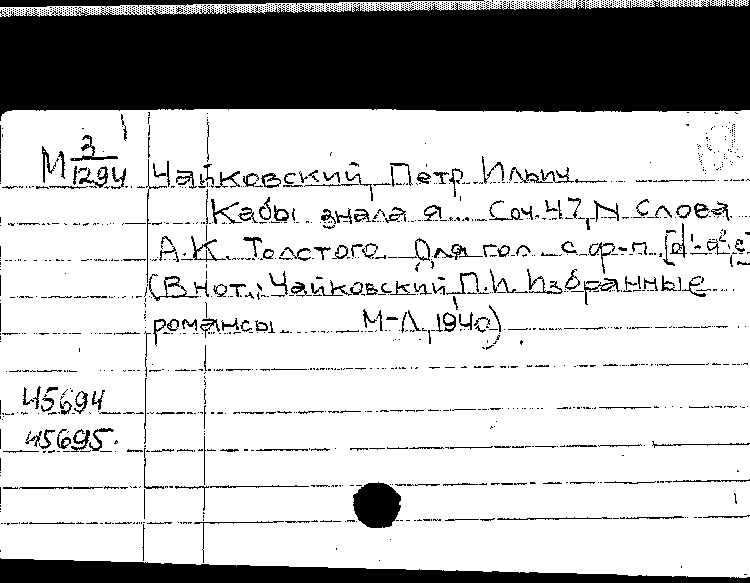 М 3/1294 Чайковский, Петр Ильич.
Кабы знала я... Соч. 47, N Слова
А.К. Толстого. Для гол. с ф-п. [d¹-a²,
(В нот.: Чайковский, П.И. Избранные
романсы. М-Л, 1940).
45694
45695.